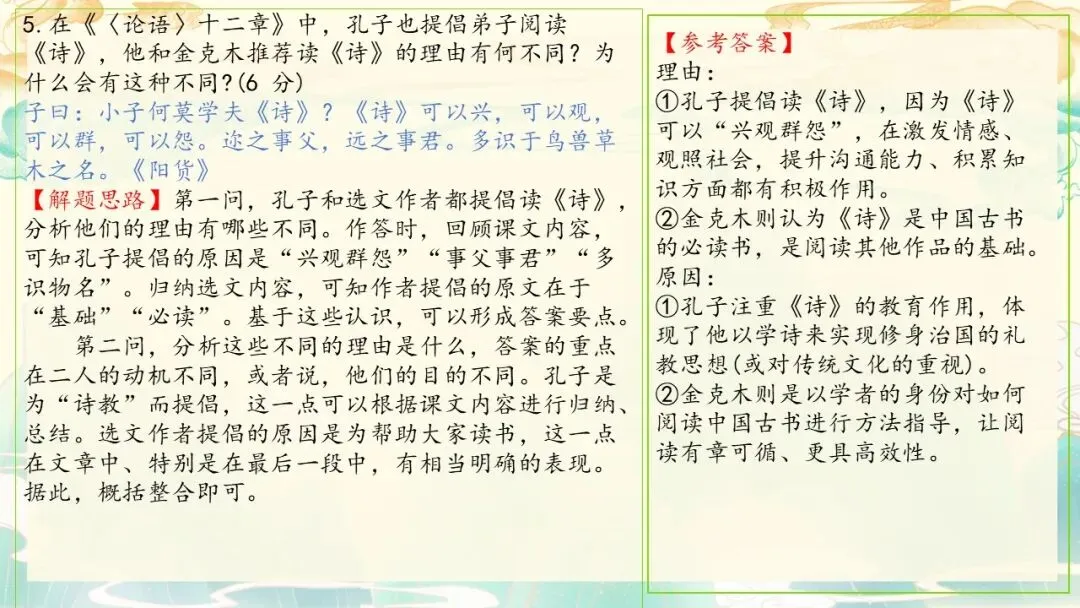 5.在《〈论语〉十二章》中，孔子也提倡弟子阅读
《诗》，他和金克木推荐读《诗》的理由有何不同？为
什么会有这种不同?(6 分)
子曰：小子何莫学夫《诗》？《诗》可以兴，可以观，
可以群，可以怨。迩之事父，远之事君。多识于鸟兽草
木之名。《阳货》
【解题思路】第一问，孔子和选文作者都提倡读《诗》，
分析他们的理由有哪些不同。作答时，回顾课文内容，
可知孔子提倡的原因是“兴观群怨”“事父事君”“多
识物名”。归纳选文内容，可知作者提倡的原文在于
“基础”“必读”。基于这些认识，可以形成答案要点。
第二问，分析这些不同的理由是什么，答案的重点
在二人的动机不同，或者说，他们的目的不同。孔子是
为“诗教”而提倡，这一点可以根据课文内容进行归纳、
总结。选文作者提倡的原因是为帮助大家读书，这一点
在文章中、特别是在最后一段中，有相当明确的表现。
据此，概括整合即可。
【参考答案】
理由：
①孔子提倡读《诗》，因为《诗》
可以“兴观群怨”，在激发情感、
观照社会，提升沟通能力、积累知
识方面都有积极作用。
②金克木则认为《诗》是中国古书
的必读书，是阅读其他作品的基础。
原因：
①孔子注重《诗》的教育作用，体
现了他以学诗来实现修身治国的礼
教思想(或对传统文化的重视)。
②金克木则是以学者的身份对如何
阅读中国古书进行方法指导，让阅
读有章可循、更具高效性。